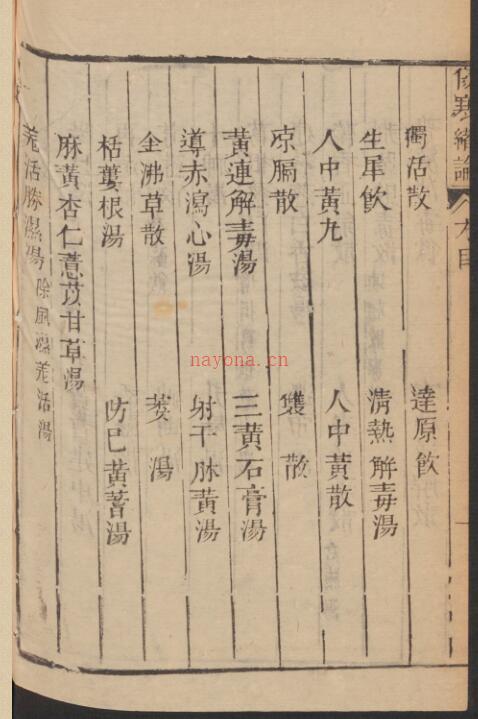 傷寒緒論 目
獨活散 達原飲
生犀飲 清熱解毒湯
人中黃丸 人中黃散
凉膈散 雙散
黃連解毒湯 三黃石膏湯
導赤瀉心湯 射干麻黃湯
金沸草散 葳湯
栝蔞根湯 防已黃蓍湯
麻黃杏仁薏苡甘草湯
羗活勝濕湯 除風濕羗活湯
nayona.cn